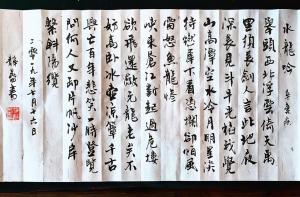 水龍吟 辛棄疾
舉頭西北浮雲倚天萬
里須長劍人言此地夜
深長見斗牛光焰我覺
山高潭空水冷月明星淡
待燃犀下看憑欄卻怕風
雷怒魚龍慘
峽束蒼江對起過危樓
欲飛還斂元龍老矣不
妨高卧冰壺涼簟千古
興亡百年悲笑一時登覽
問何人又卸片帆沙岸
繫斜陽纜
二零一九年七月六日